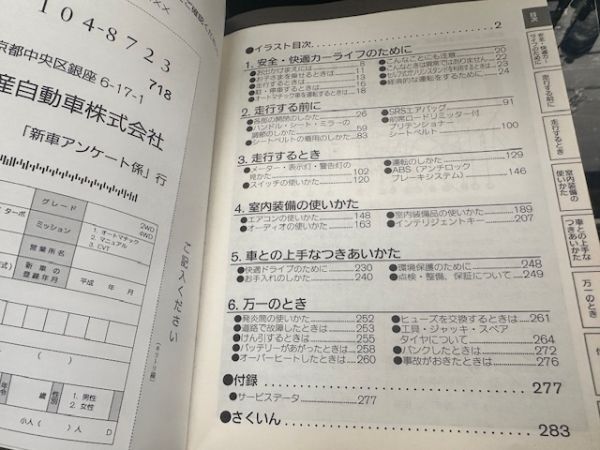 ご確認くださ
104-8723
718
京都中央区銀座6-17-1
産自動車株式会社
「新車アンケート係」行
ターボ
グレード
ミッション
2WD
4WD
1. オートマチック
2. マニュアル
3. CVT
営業所名
新車の
登録年月
平成 年 月
ご記入ください
歳
性別
1. 男性
2. 女性
小人( )人
D
●イラスト目次 2
1. 安全・快適カーライフのために
●おでかけまえには 8
●お子さまを乗せるときは 11
●走行するときは 13
●駐・停車するときは 16
●オートマチック車を運転するときは 18
●こんなことにも注意 20
●こんなときは異常ではありません 22
●セルフ式ガソリンスタンドを利用するときは 23
●経済的な運転をするために 24
2. 走行する前に
●各部の開閉のしかた 26
●ハンドル・シート・ミラーの
調節のしかた 59
●シートベルトの着用のしかた 83
●SRSエアバッグ 91
●前席ロードリミッター付
プリテンショナー
シートベルト 100
3. 走行するとき
●メーター・表示灯・警告灯の
見かた 102
●スイッチの使いかた 120
●運転のしかた 129
●ABS(アンチロック
ブレーキシステム) 146
4. 室内装備の使いかた
●エアコンの使いかた 148
●オーディオの使いかた 163
●室内装備品の使いかた 189
●インテリジェントキー 207
5. 車との上手なつきあいかた
●快適ドライブのために 230
●お手入れのしかた 240
●環境保護のために 248
●点検・整備、保証について 249
6. 万一のとき
●発炎筒の使いかた 252
●道路で故障したときは 253
●けん引するときは 255
●バッテリーがあがったときは 258
●オーバーヒートしたときは 260
●ヒューズを交換するときは 261
●工具・ジャッキ・スペア
タイヤについて 264
●パンクしたときは 272
●事故がおきたときは 276
●付録 277
●サービスデータ 277
●さくいん 283
目次
安全・快適カー
ライフのために
走行する前に
走行するとき
室内装備の
使いかた
車との上手な
つきあいかた
万一のとき